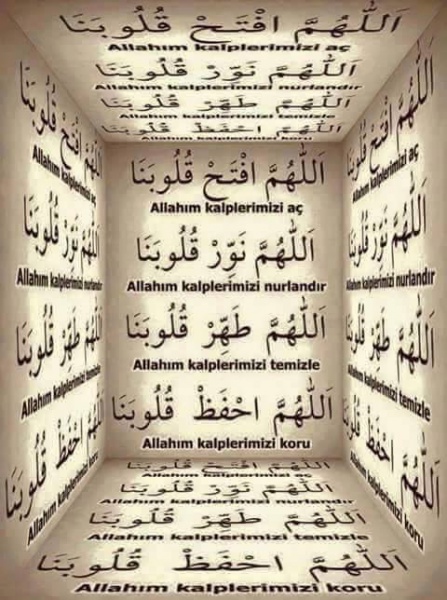 اَللّٰهُمَّ افْتَحْ قُلُوبَنَا
Allahım kalplerimizi aç
اَللّٰهُمَّ نَوِّرْ قُلُوبَنَا
Allahım kalplerimizi nurlandır
اَللّٰهُمَّ طَهِّرْ قُلُوبَنَا
Allahım kalplerimizi temizle
اَللّٰهُمَّ احْفَظْ قُلُوبَنَا
Allahım kalplerimizi koru
اَللّٰهُمَّ افْتَحْ قُلُوبَنَا
Allahım kalplerimizi aç
اَللّٰهُمَّ نَوِّرْ قُلُوبَنَا
Allahım kalplerimizi nurlandır
اَللّٰهُمَّ طَهِّرْ قُلُوبَنَا
Allahım kalplerimizi temizle
اَللّٰهُمَّ احْفَظْ قُلُوبَنَا
Allahım kalplerimizi koru
اَللّٰهُمَّ افْتَحْ قُلُوبَنَا
Allahım kalplerimizi aç
اَللّٰهُمَّ نَوِّرْ قُلُوبَنَا
Allahım kalplerimizi nurlandır
اَللّٰهُمَّ طَهِّرْ قُلُوبَنَا
Allahım kalplerimizi temizle
اَللّٰهُمَّ احْفَظْ قُلُوبَنَا
Allahım kalplerimizi koru
اَللّٰهُمَّ افْتَحْ قُلُوبَنَا
Allahım kalplerimizi aç
اَللّٰهُمَّ نَوِّرْ قُلُوبَنَا
Allahım kalplerimizi nurlandır
اَللّٰهُمَّ طَهِّرْ قُلُوبَنَا
Allahım kalplerimizi temizle
اَللّٰهُمَّ احْفَظْ قُلُوبَنَا
Allahım kalplerimizi koru
اَللّٰهُمَّ افْتَحْ قُلُوبَنَا
Allahım kalplerimizi aç
اَللّٰهُمَّ نَوِّرْ قُلُوبَنَا
Allahım kalplerimizi nurlandır
اَللّٰهُمَّ طَهِّرْ قُلُوبَنَا
Allahım kalplerimizi temizle
اَللّٰهُمَّ احْفَظْ قُلُوبَنَا
Allahım kalplerimizi koru